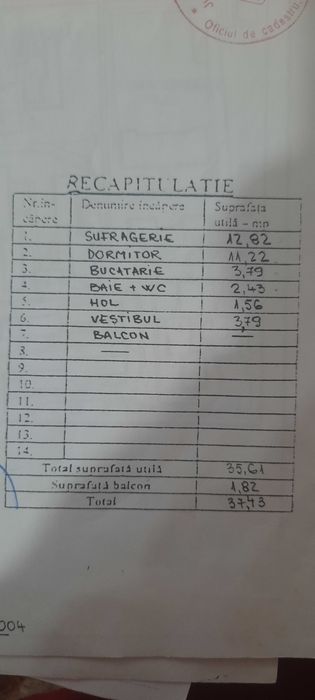 Oficiul de cadastru
RECAPITULATIE
Nr.în- Denumire încăpere Suprafața
căpere utilă - mp
1. SUFRAGERIE 12,82
2. DORMITOR 11,22
3. BUCATARIE 3,79
4. BAIE + WC 2,43
5. HOL 1,56
6. VESTIBUL 3,79
7. BALCON —
8. —
9.
10.
11.
12.
13.
14.
Total suprafată utilă 35,61
Suprafată balcon 1,82
Total 37,43
004